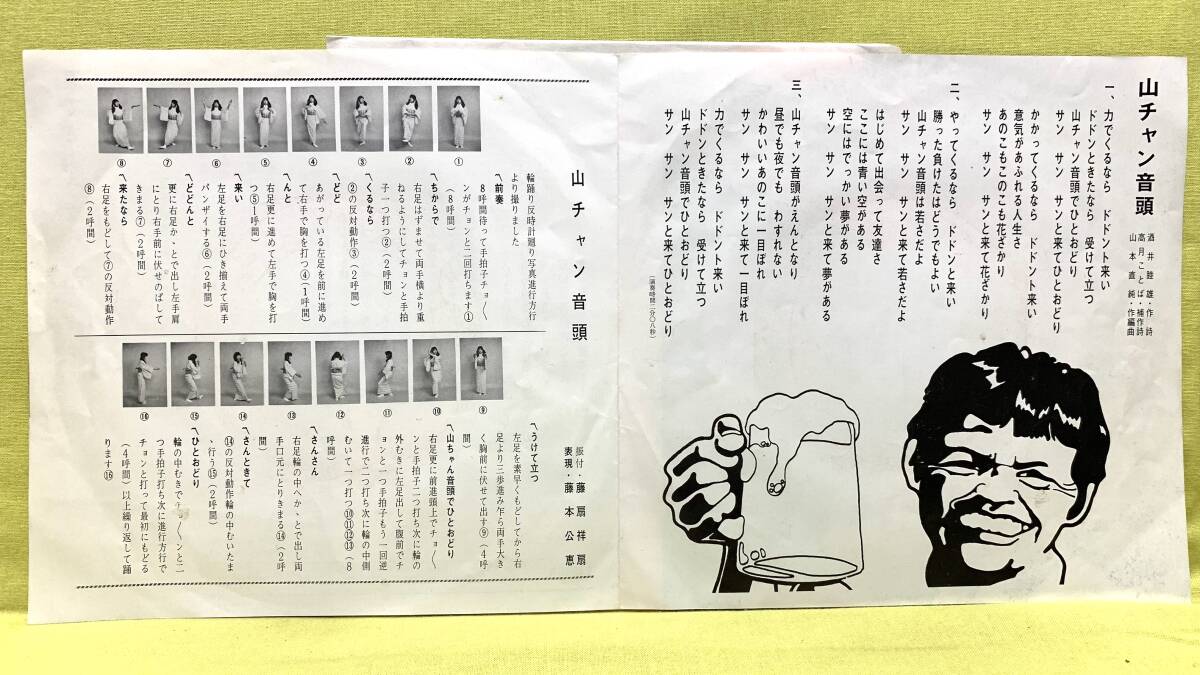 山チャン音頭
酒井睦雄・作詩
高月ことば・補作詩
山本直純・作編曲
一、力でくるなら　ドドント来い
ドドンときたなら　受けて立つ
山チャン音頭でひとおどり
サン　サン　サンと来てひとおどり
かかってくるなら　ドドント来い
意気があふれる人生さ
あのこもこのこも花ざかり
サン　サン　サンと来て花ざかり
二、やってくるなら　ドドンと来い
勝った負けたはどうでもよい
山チャン音頭は若さだよ
サン　サン　サンと来て若さだよ
はじめて出会って友達さ
ここには青い空がある
空にはでっかい夢がある
サン　サン　サンと来て夢がある
三、山チャン音頭がえんとなり
昼でも夜でも　わすれない
かわいいあのこに一目ぼれ
サン　サン　サンと来て一目ぼれ
力でくるなら　ドドント来い
ドドンときたなら　受けて立つ
山チャン音頭でひとおどり
サン　サン　サンと来てひとおどり
（演奏時間二分〇八秒）
山チャン音頭
振付・藤扇祥扇
表現・藤本公恵
輪踊り反時計廻り写真進行方行
より撮りました
〽前奏
8呼間待って手拍子チョ〱
ンがチョンと二回打ちます①
（8呼間）
〽ちからで
右足はずませて両手横より重
ねるようにしてチョンと手拍
子一つ打つ②（2呼間）
〽くるなら
②の反対動作③（2呼間）
〽どど
あがっている左足を前に進め
て右手で胸を打つ④（1呼間）
〽んと
右足更に進めて左手で胸を打
つ⑤1呼間）
〽来い
左足を右足にひき揃えて両手
バンザイする⑥（2呼間）
〽どどんと
更に右足か、とで出し左手肩
にとり右手前に伏せのばして
きまる⑦（2呼間）
〽来たなら
右足をもどして⑦の反対動作
⑧（2呼間）
①
②
③
④
⑤
⑥
⑦
⑧
〽うけて立つ
左足を素早くもどしてから右
足より三歩進み乍ら両手大き
く胸前に伏せて出す⑨（4呼
間）
〽山ちゃん音頭でひとおどり
右足更に前進頭上でチョ〱
ンと手拍子二つ打ち次に輪の
外むきに左足出して腹前でチ
ョンと一つ手拍子もう一回逆
進行で二つ打ち次に輪の中側
むいて一つ打つ⑩⑪⑫⑬（8
呼間）
〽さんさん
右足輪の中へか、とで出し両
手口元にとりきまる⑭（2呼
間）
〽さんときて
⑭の反対動作輪の中むいたま
、行う⑮（2呼間）
〽ひとおどり
輪の中むきでチョ〱ンと二
つ手拍子打ち次に進行方行で
チョンと打って最初にもどる
（4呼間）以上繰り返して踊
ります⑯
⑨
⑩
⑪
⑫
⑬
⑭
⑮
⑯